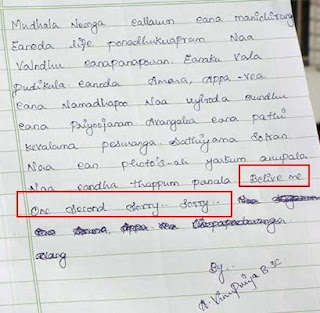 Mudhala Neenga ellaum eana manichirunga
Eanoda life ponadhukuapram Naa
Valndhu eanapanaporan. Eanaku Vala
pudikala eanoda Amma, Appa -vea
eana Nambadhapo Naa uyiroda irundhu
eana priyoojanam Avangalea eana pathi
kevaloma pesuranga. Sathiyama Solran
Naa ean photo's-ah yarkum anupala
Naa eandha thappum panala. Belive me
One second sorry.. sorry...
By...
B.SC